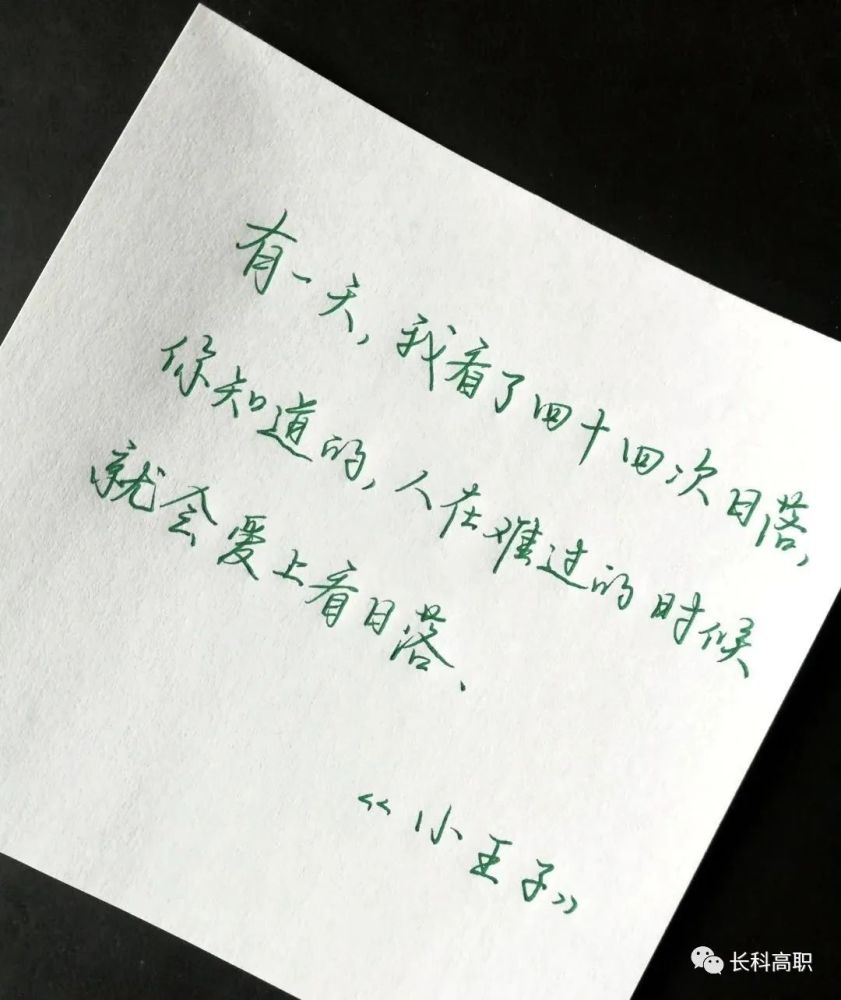 有一天，我看了四十四次日落，
你知道的，人在难过的时候
就会爱上看日落、
《小王子》
长科高职